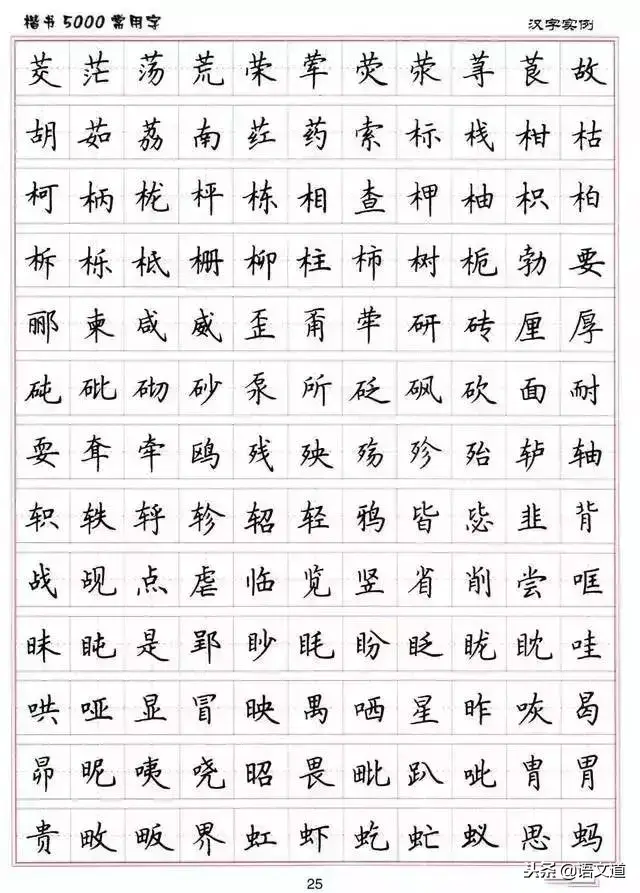 楷书5000常用字 汉字实例
茭茫荡荒荣荤荧荥荨茛故
胡茹荔南荭药索标栈柑枯
柯柄栊枰栋相查柙柚枳柏
柝栎柢栅柳柱柿树栀勃要
郦柬咸威歪甭荜研砖厘厚
砘砒砌砂泵所砭砜砍面耐
耍耷牵鸥残殃殇殄殆轳轴
轵轶轷轸轺轻鸦皆毖韭背
战觇点虐临览竖省削尝哐
昧盹是郢眇眊盼眨昽眈哇
哄哑显冒映禺哂星昨咴曷
昴昵咦哓昭畏毗趴呲胄胃
贵畋畈界虹虾虼虻蚁思蚂
25
头条@语文道